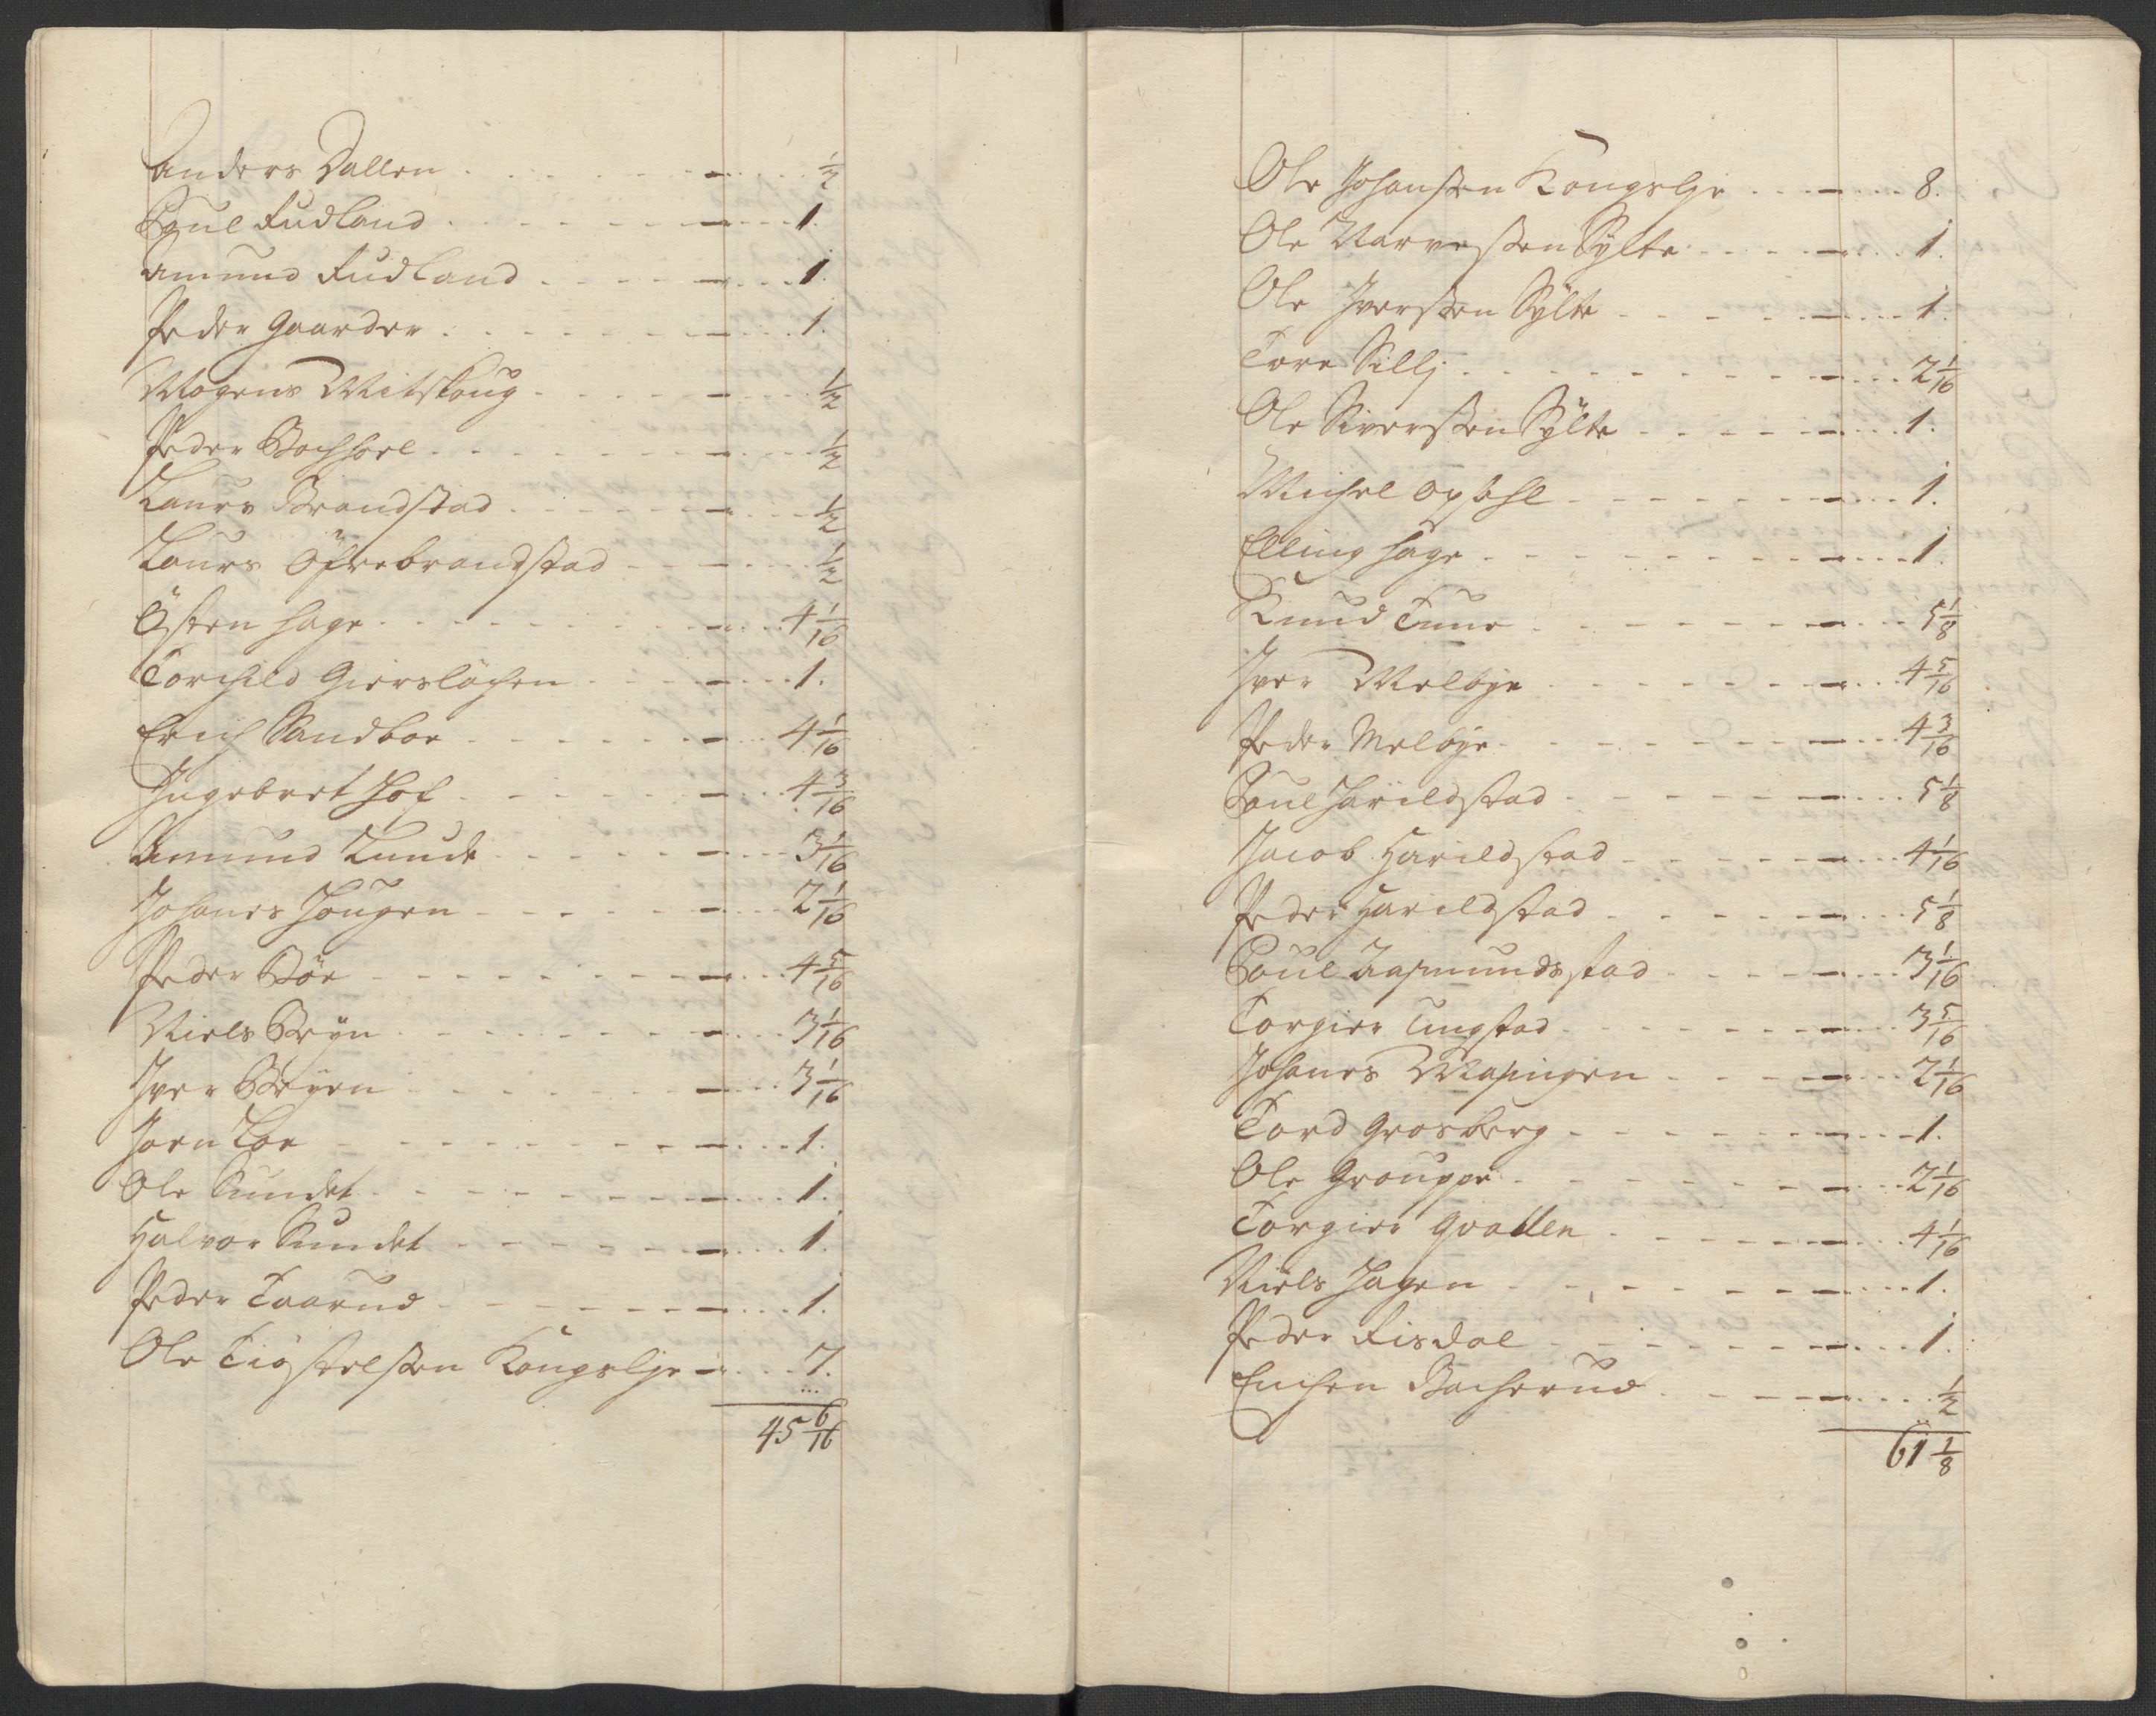 Anders Dallen - ½
Poul Rudland - 1.
Amund Rudland - 1.
Peder Gaarder - 1.
Mogens Mitskoug - ½
Peder Bochhoel - ½
Laurs Brandstad - ½
Laurs Öfrebrandstad - ½
Östen Hage - 4 1/16
Torchild Gierslöchen - 1.
Erich Sandboe - 4 1/16
Ingebret Hof - 4 3/16
Amund Lunde - 3 1/16
Johanes Hougen - 2 1/16
Peder Böe - 4 5/16
Niels Bryn - 3 1/16
Iver Bryen - 3 1/16
Joen Loe - 1.
Ole Sundet - 1.
Halvor Sundet - 1.
Peder Taarud - 1.
Ole Tiöstelßen Kongelje - 7.
45 6/16
Ole Johanßen Kongslje - 8.
Ole Narveßen Sylte - 1.
Ole Iverßen Sylte - 1.
Tore Sillj - 2 1/16
Ole Siverßen Sylte - 1.
Michel Opsehl - 1.
Elling Hage - 1.
Knud Tune - 5 1/8
Iver Melbye - 4 5/16
Peder Melbye - 4 3/16
Poul Harildstad - 5 1/8
Jacob Harildstad - 4 1/16
Peder Harildstad - 5 1/8
Poul Aasmundsstad - 3 1/16
Torgier Tingstad - 3 5/16
Johanes - 2 1/16
Tord Grosberg - 1.
Ole Grouppe - 2 1/16
Torgier Qvallen - 4 1/16
Niels Hagen - 1.
Peder Risdal - 1.
Enchen Bacherud - ½
61 1/8